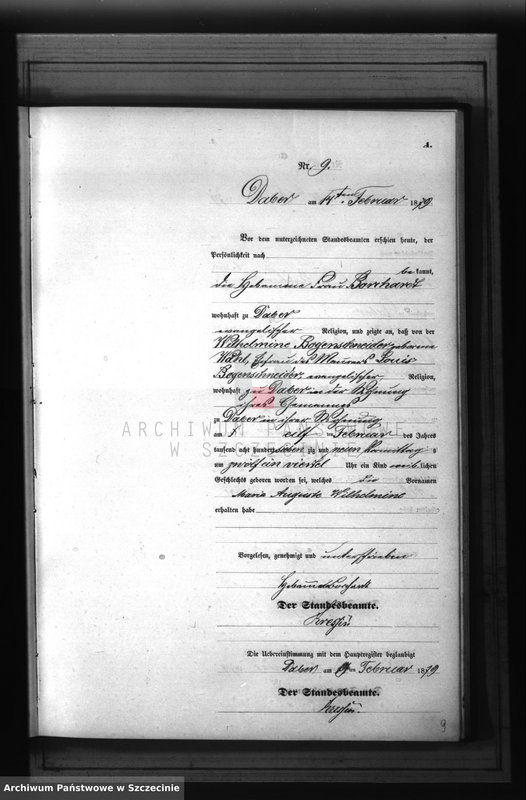 A.
Nr. 9.
Daber am 14ten Februar 1879
Vor dem unterzeichneten Standesbeamten erschien heute, der
Persönlichkeit nach
be kannt,
die Hebamme Frau Borchardt
wohnhaft zu Daber
evangelischer Religion, und zeigte an, daß von der
Wilhelmine Bogenschneider geborene
Wahl, Ehefrau des Maurers Louis
Bogenschneider, evangelischer Religion,
wohnhaft zu Daber in der Wohnung
ihres Ehemannes
zu Daber in ihrer Wohnung
am elf ten Februar des Jahres
tausend acht hundert sieben zig und neun Vormittag s
um zwölf ein viertel Uhr ein Kind weib lichen
Geschlechts geboren worden sei, welches die Vornamen
Maria Auguste Wilhelmine
erhalten habe
Vorgelesen, genehmigt und unterschrieben
Hebamme Borchardt
Der Standesbeamte.
Die Uebereinstimmung mit dem Hauptregister beglaubigt
Daber am ten Februar 1879
Der Standesbeamte.
9
ARCHIWUM PAŃSTWOWE
W SZCZECINIE
Archiwum Państwowe w Szczecinie